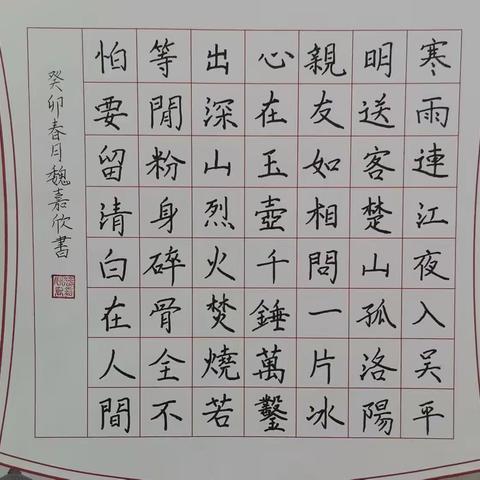 寒雨連江夜入吴平
明送客楚山孤洛陽
親友如相問一片冰
心在玉壺千錘萬鑿
出深山烈火焚燒若
等閒粉身碎骨全不
怕要留清白在人間
癸卯春月魏嘉欣書